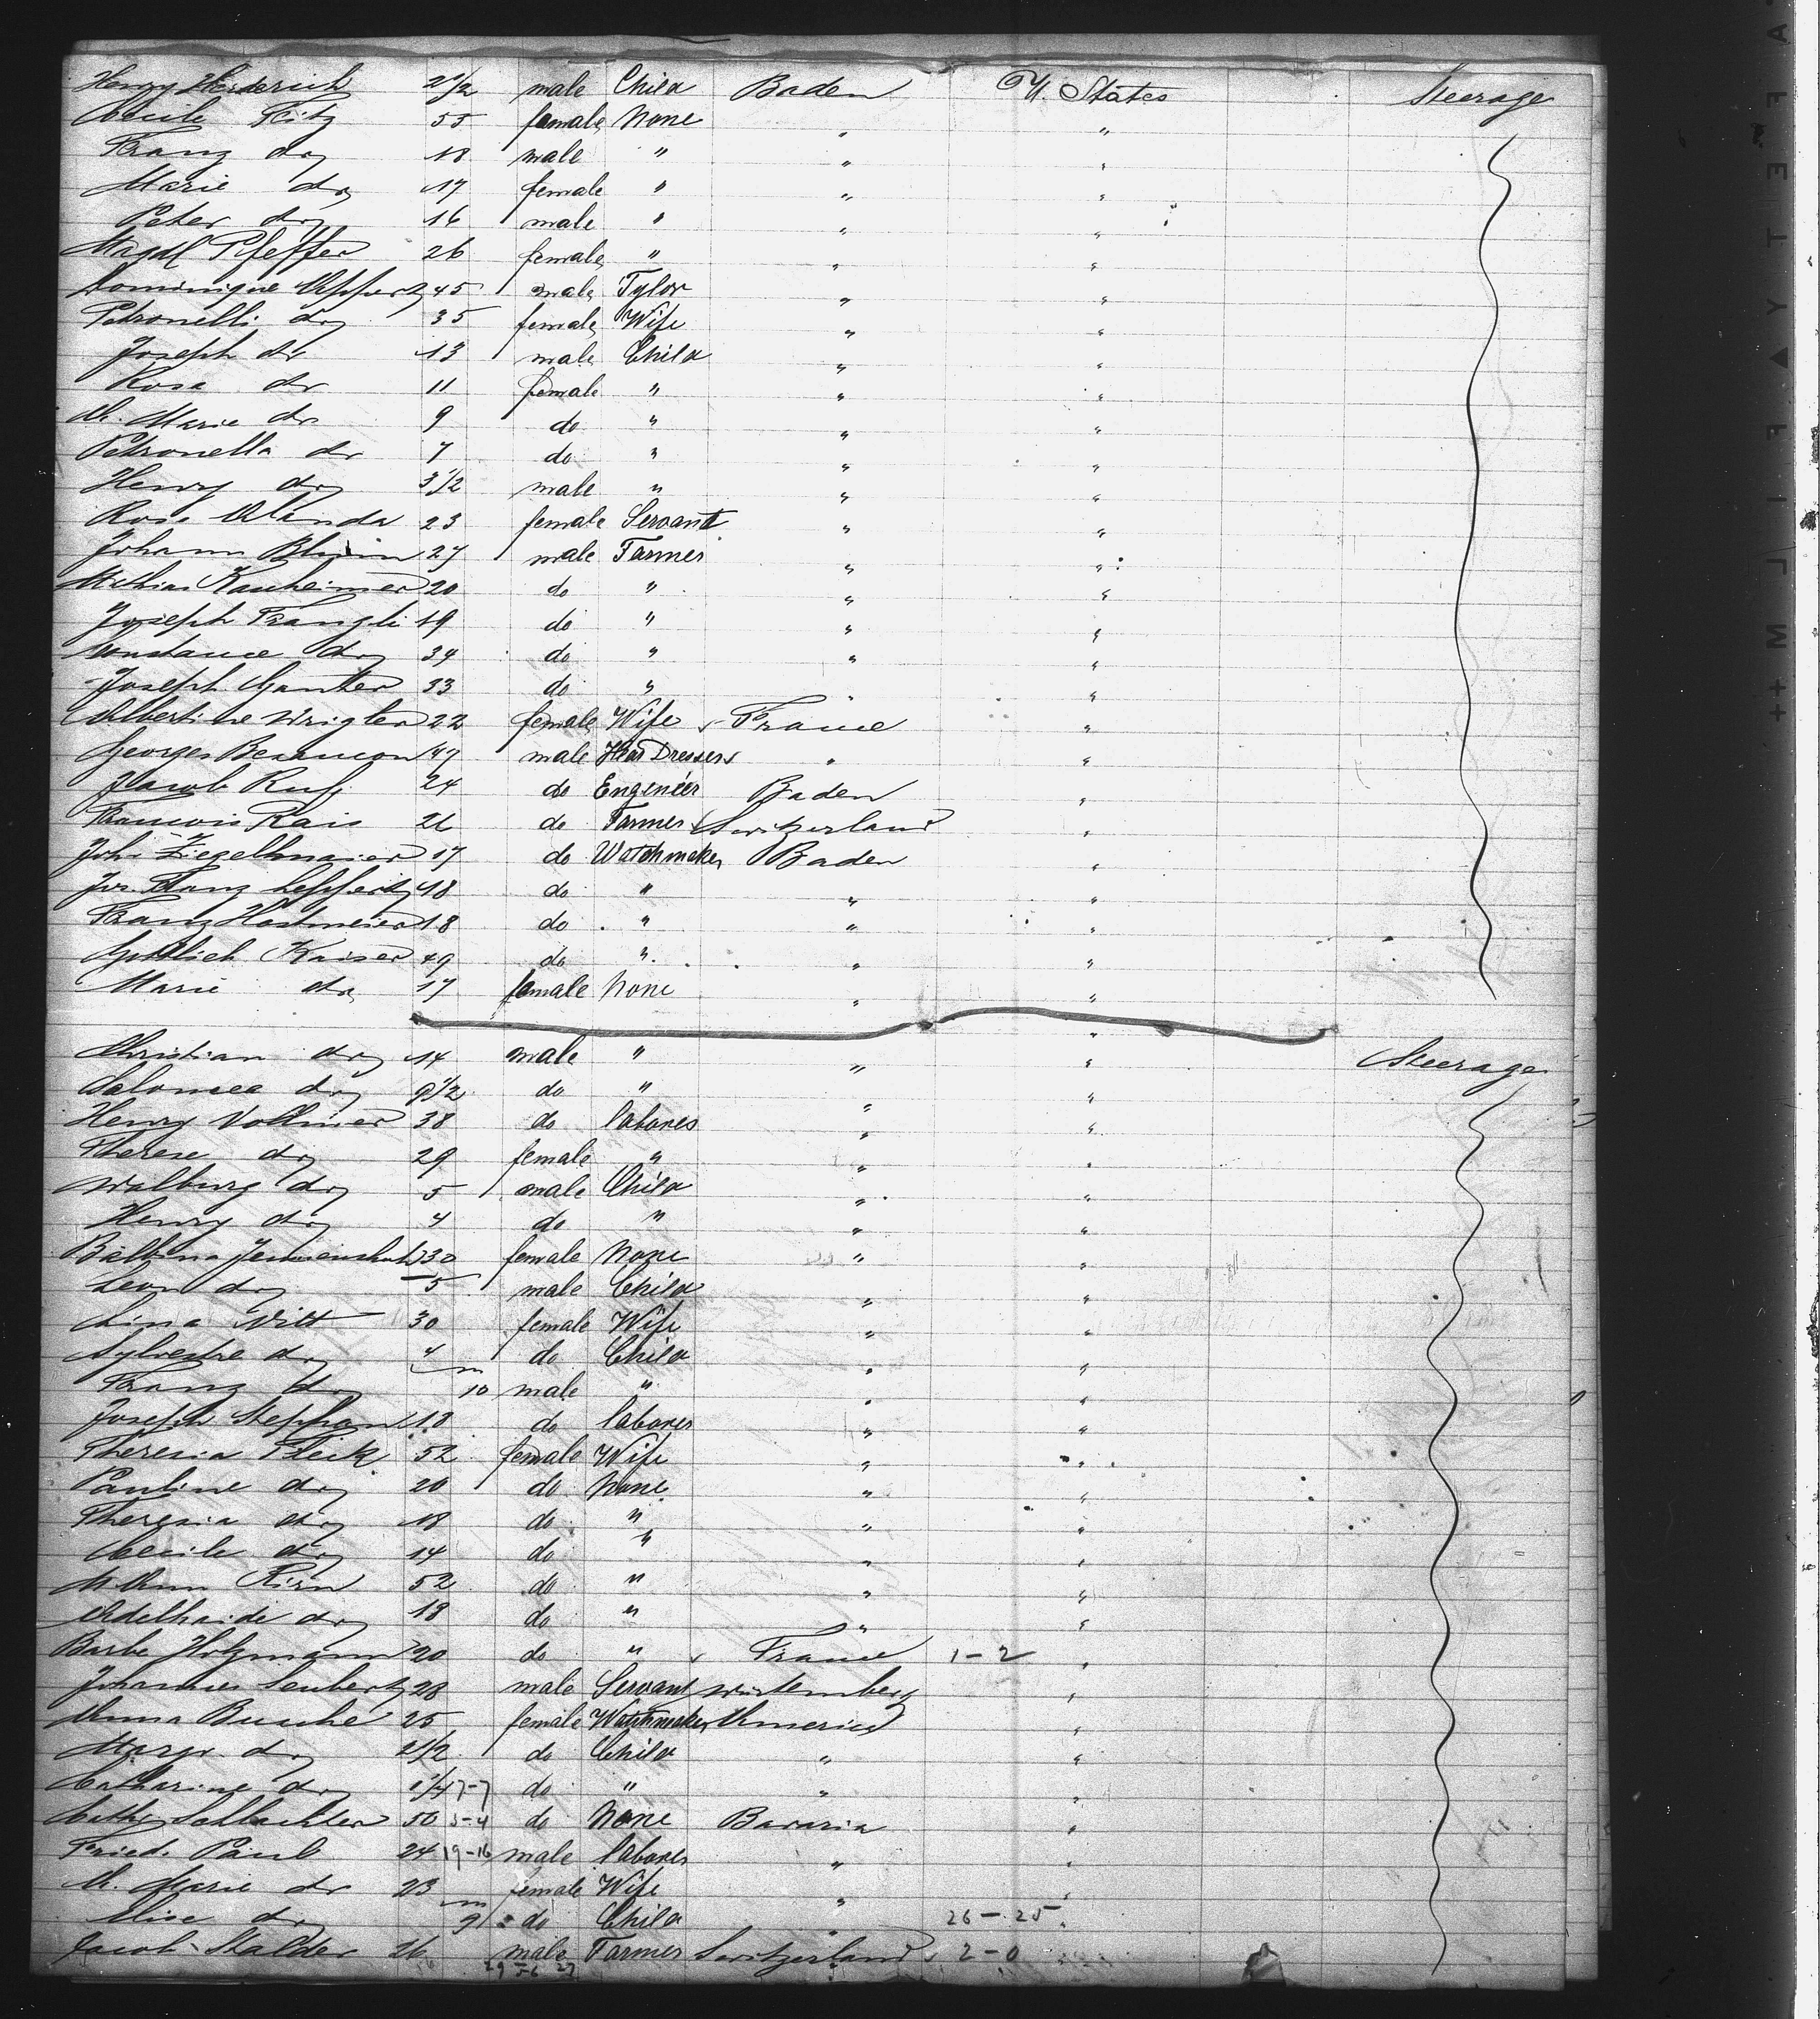 Henry Hederich 2 1/2 male Child Baden U. States Steerage
Cecile Fitz 55 female None " "
Franz do 18 male " " "
Marie do 17 female " " "
Peter do 16 male " " "
Magdl Pfeffer 26 female " " "
Dominique 45 male Tylor " "
Petronelli do 35 female Wife " "
Joseph do 13 male Child " "
Rosa do 11 female " " "
M. Marie do 9 do " " "
Petronella do 7 do " " "
Henry do 3 1/2 male " " "
Rosa 23 female Servant " "
Johann 27 male Farmer " "
Mathias Kauheimer 20 do " " "
Joseph Frangli 19 do " " "
Constance do 34 do " " "
Joseph Ganter 33 do " " "
Albertine 22 female Wife France "
Georges Besancon 47 male Hear Dresser " "
Jacob Ruf 24 do Engeneer Baden "
Francois Rais 21 do Farmer Switzerland "
Joh. Ziegelmaier 17 do Watchmaker Baden "
Jos. Franz 18 do " " "
Franz 18 do " " "
Gottlieb Kaiser 49 do " " "
Marie do 17 female None " "
Christian do 14 male " " " Steerage
Salomea do 9 1/2 do " " "
Henry Vollmer 38 do laborer " "
Therese do 29 female " " "
Walburg do 5 male Child " "
Henry do 4 do " " "
Balbina 30 female None " "
Leon do 5 male Child " "
Lina Witt 30 female Wife " "
Sylvestre do 4 do Child " "
Franz do m 10 male " " "
Joseph Stephan 18 do laborer " "
Theresia Fleck 52 female Wife " "
Pauline do 20 do None " "
Theresia do 18 do " " "
Cecile do 14 do " " "
M. Ann Kirn 52 do " " "
Adelhaide do 18 do " " "
Barbe Holzmann 20 do " France 1-2 "
Johannes 28 male Servant Wurtemberg "
Anna Busche 25 female Watchmaker America "
Margr. do 2 1/2 do Child " "
Catharine do 1/4 7-7 do " " "
Cath. Schlachter 50 3-4 do None Bavaria "
Fried. Paul 24 19-16 male laborer " "
M. Marie do 23 female Wife " "
Alise do m 9 do Child " 26-25 "
Jacob Stalder 26 male Farmer Switzerland 2-0